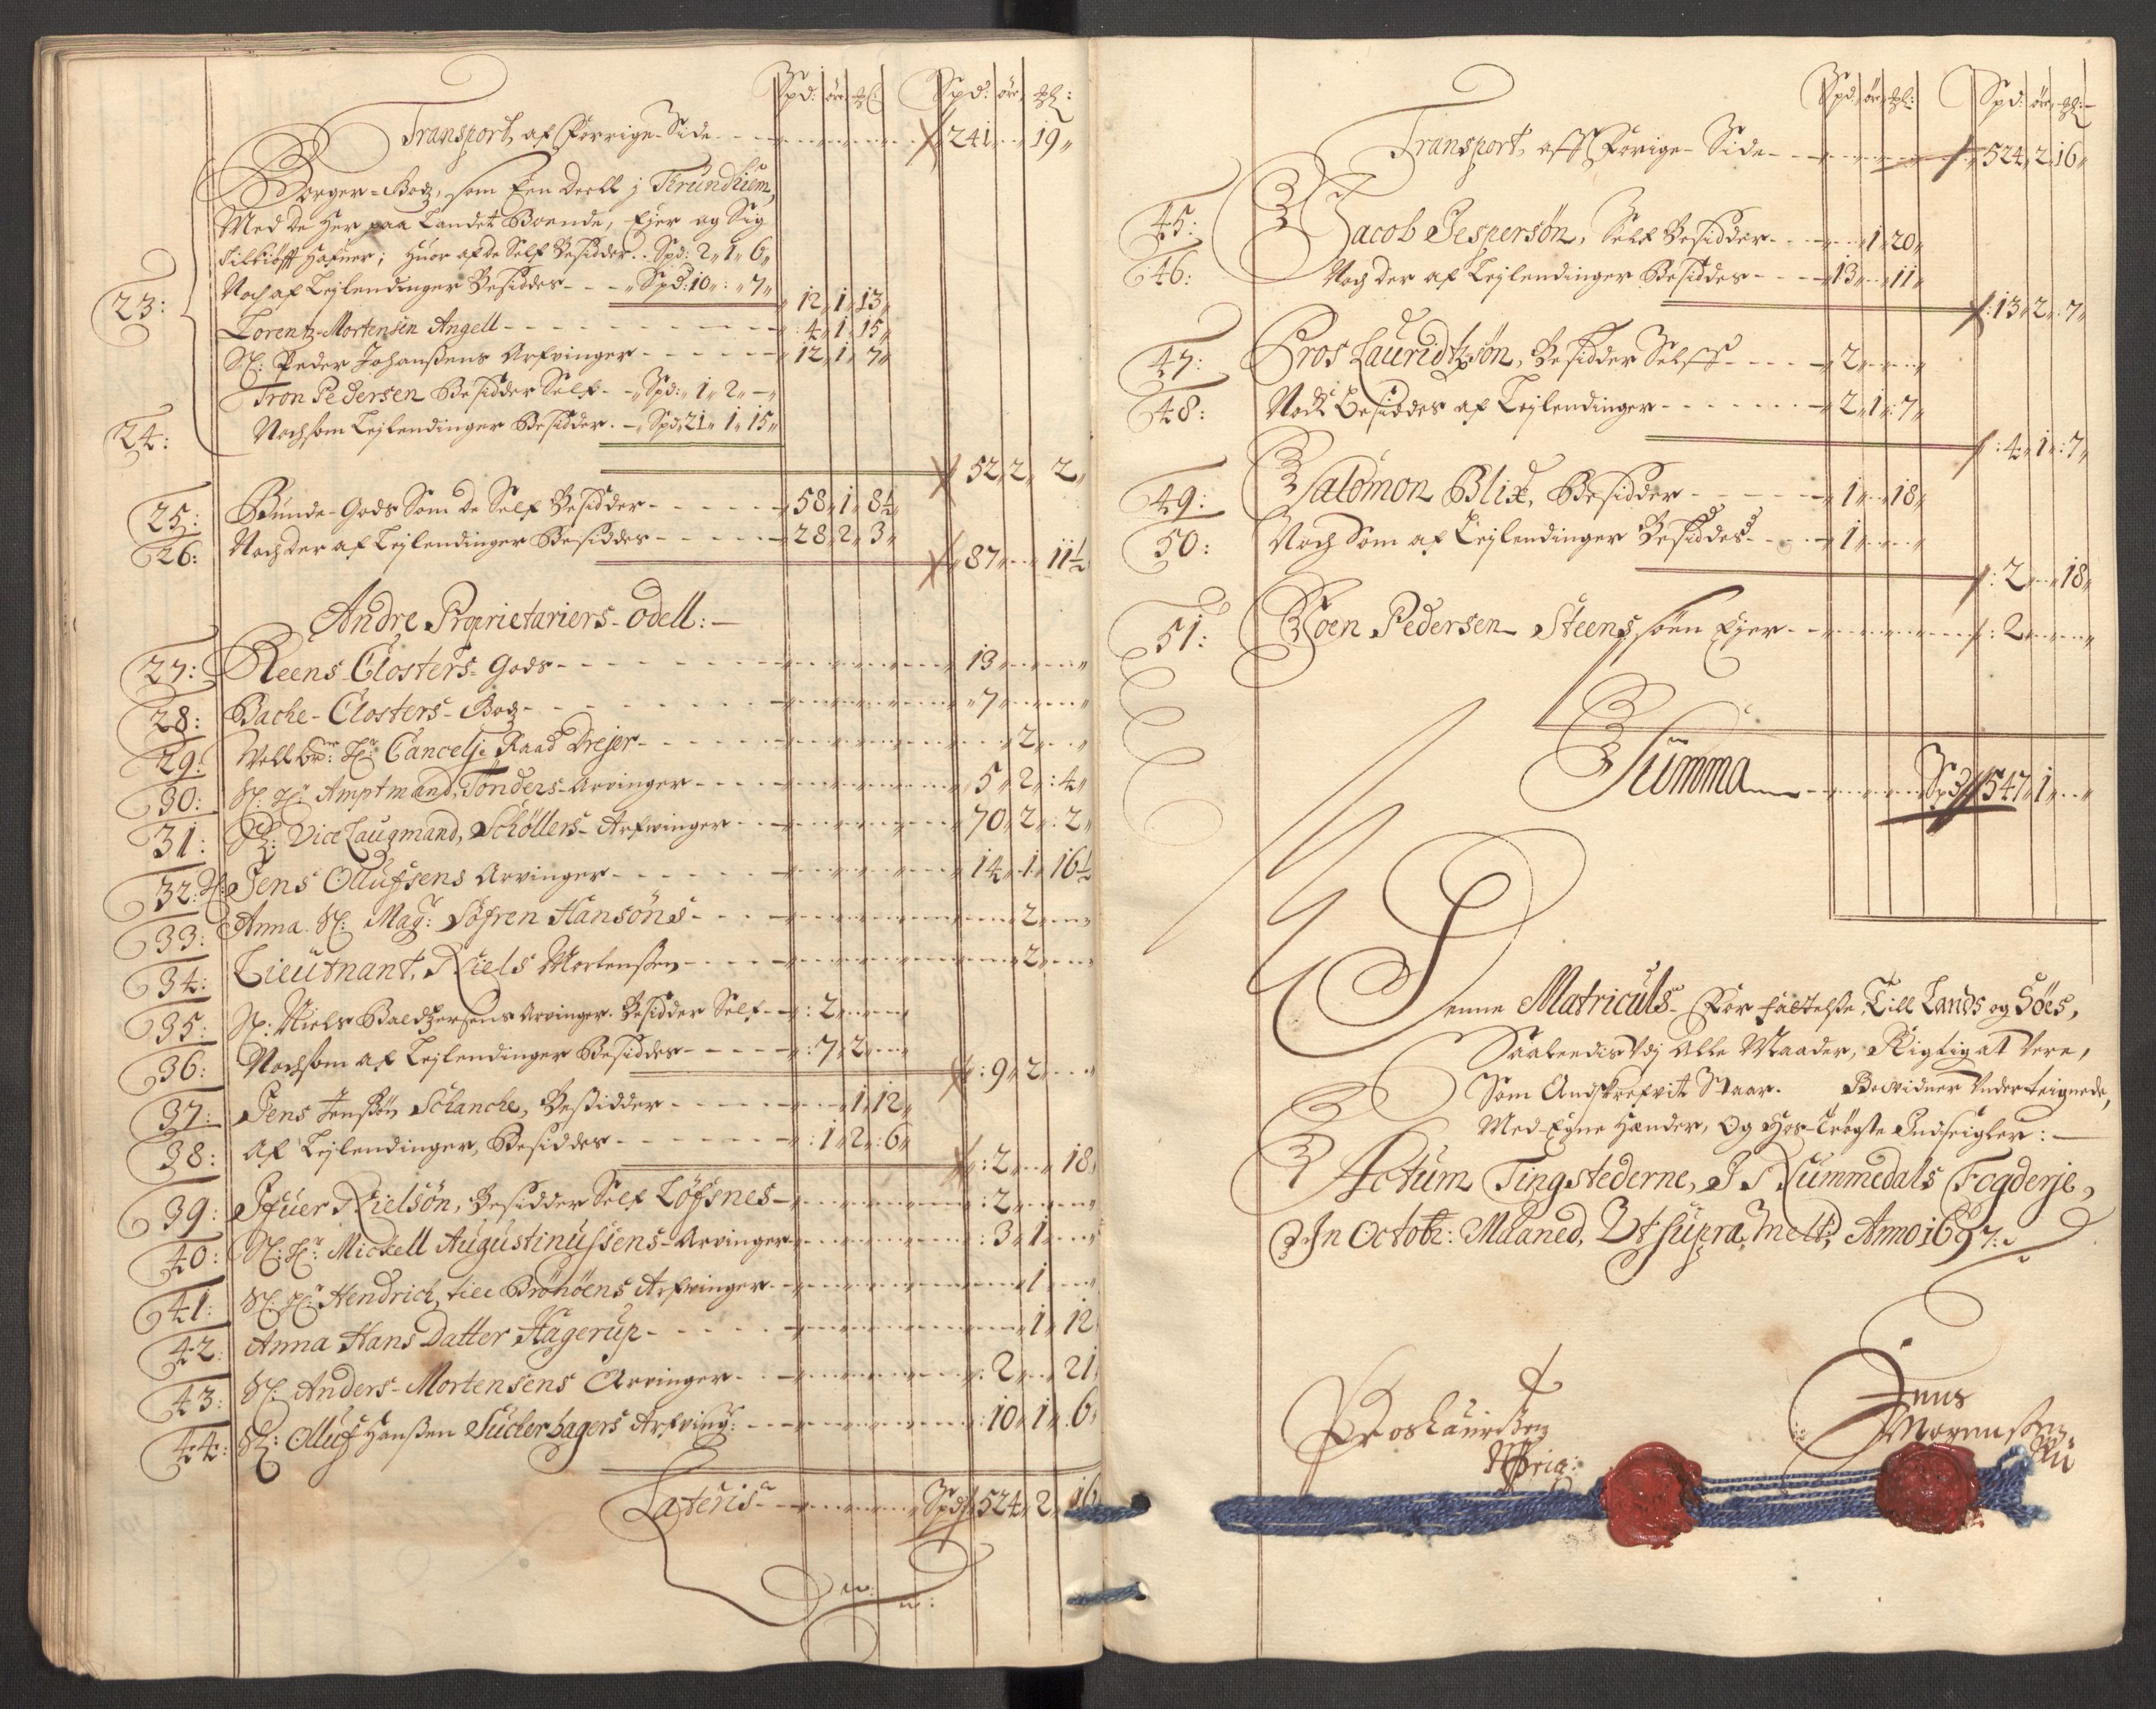 Spd: öre ₰: Spd: öre ₰:
Transport, af Forrige Side 241 19
Borger-Bodz, som Een Deell j Trundhiem,
Med de Her paa Landet Boende, Ejer og Sig
tilkiøfft Hafuer; Huor af de Self Besidder. Spd: 2 1 6
23: Noch af Lejlendinger Besiddes Spd: 10 7 12 1 13
Lorentz-Mortensen Angell 4 1 15
Sl: Peder Johanßens Arfvinger 12 1 7
Tron Pedersen Besidder Self Spd: 1 2
24: Noch som Lejlendinger Besidder. Spd 21 1 15
52 2 2
25: Bunde-Gods Som de Self Besidder 58 1 8½
26: Noch der af Lejlendinger Besiddes 28 2 3
87 11½
Andre Proprietariers Odell:
27: Reens Closters Gods 13
28: Bache-Closters-Bodz 7
29: Vell br: Hr: Cancelje Raad Drejer 2
30: Sl: Hr: Amptmand, Tonders Arvinger 5 2 4
31: Sl: Vice Laugmand, Schöllers Arfvinger 70 2 2
32: Jens Olluſsens Arvinger 14 1 16½
33: Anna Sl: Mag: Söfren Hansöns 2
34: Lieutnant, Niels Mortenßen 2
35: Sl: Niels Baldtzersens Arvinger. Besidder Self 2
36: Noch som af Lejlendinger Besiddes 7 2
9 2
37: Jens Jenßön Schancke, Besidder 1 12
38: Af Lejlendinger, Besiddes 1 2 6
2 18
39: Ifuer Nielsön, Besidder Self Löfsnes 2
40: Sl: Hr: Mickell Augustinussens Arvinger 3 1
41: Sl: Hr: Hendrich, till Brönöens Arfvinger 1
42: Anna Hans Datter Hagerup 1 12
43: Sl: Anders Mortensens Arvinger 2 21
44: Sl: Olluf Hanßen Suclerhagers Arfving: 10 1 6
Lateris Spd 524 2 16
Spd: öre ₰: Spd: öre ₰:
Transport, aff Forige Side 524 2 16
45: Jacob Jespersön, Self Besidder 1 20
46: Noch der af Lejlendinger Besiddes 13 11
13 2 7
47: Pros Lauridtzön, Besidder Selff 2
48: Noch Besiddes af Lejlendinger 2 1 7
4 1 7
49: Salomon Blix, Besidder 1 18
50: Noch Som af Lejlendinger Besiddes 1
2 18
51: Joen Pedersen Steens söen Ejer 2
Summa Spd 547 1
Denne Matriculs Forfattelße Till Lands og Söes,
Saaledis Vdj Alle Maader, Rigtig at Vere,
Som Andskrefvit Staar. Bevidner Vnderteignede,
Med Egne Hænder, Og Hos-Trögte Indseigler:
Actum Tingstederne, I Nummedals Fogderje,
In Octobr: Maaned, Ut supra Melt, Anno 1697.
Pros Laurißön
Jens